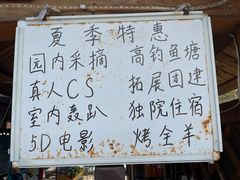 夏季特惠
园内采摘 高钓鱼塘
真人CS 拓展团建
室内轰趴 独院住宿
5D电影 烤全羊